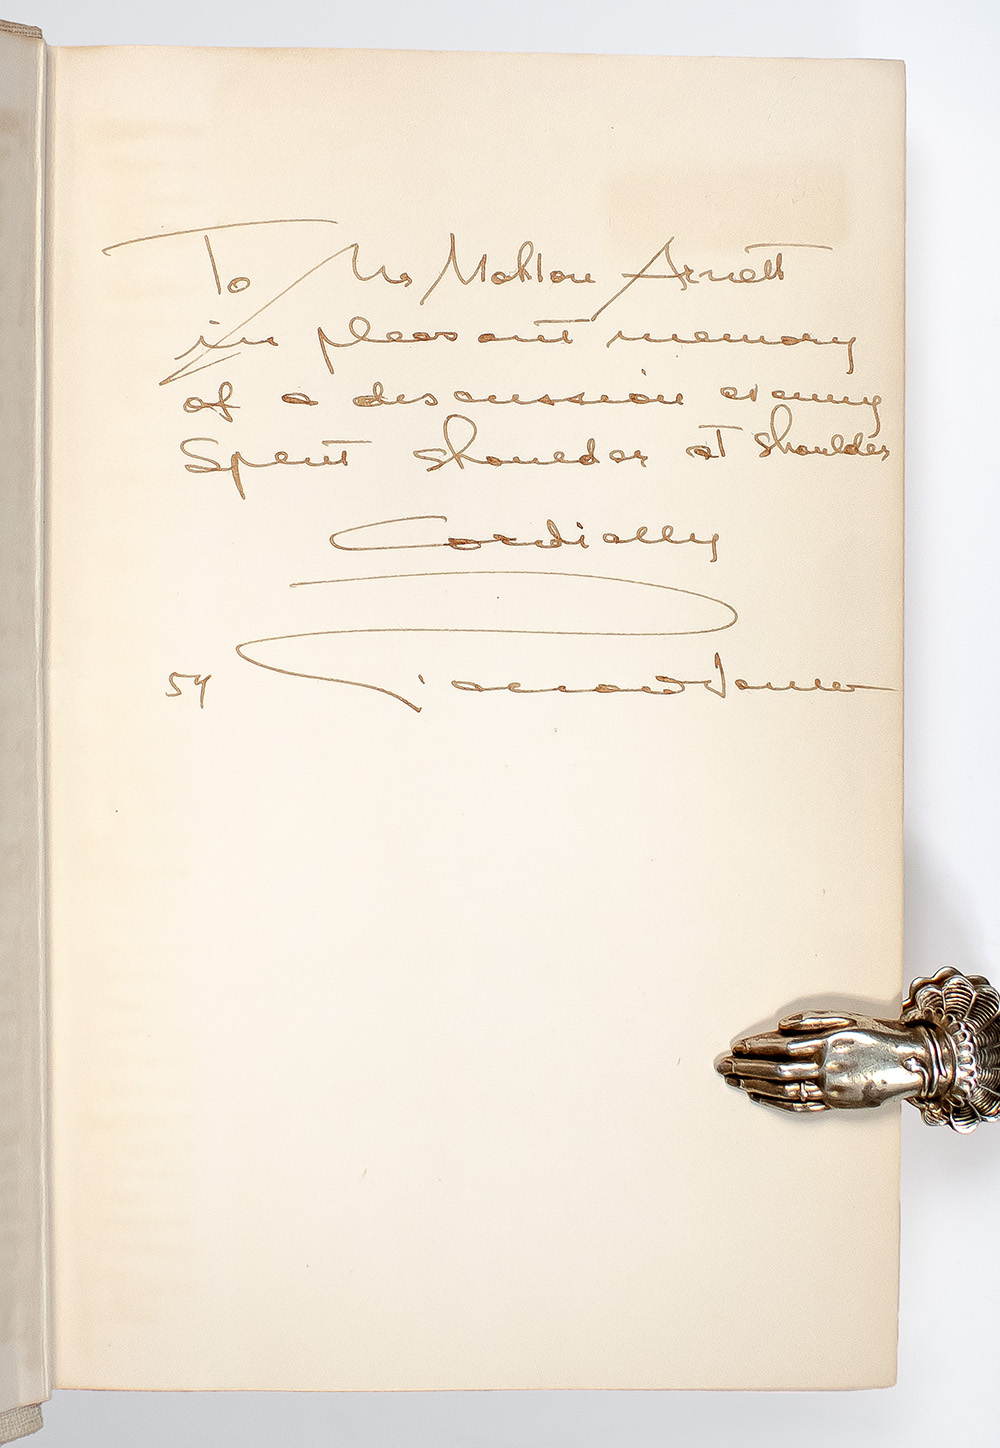 To Mrs Mahlon Arnett
in pleasant memory
of a discussion evening
Spent shoulder at shoulder
Cordially
54